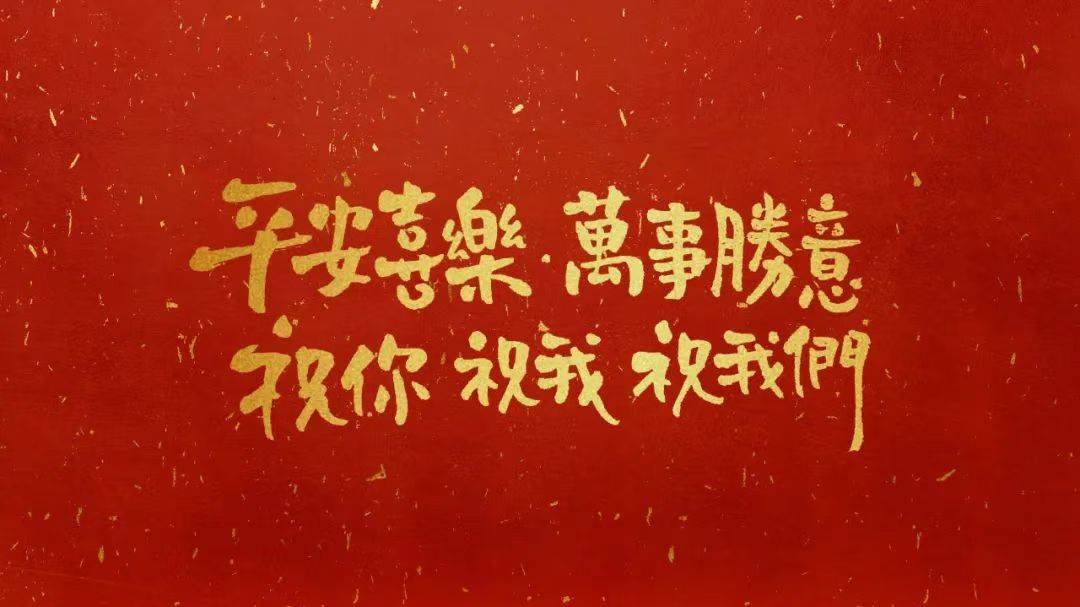 平安喜樂·萬事勝意
祝你 祝我 祝我們